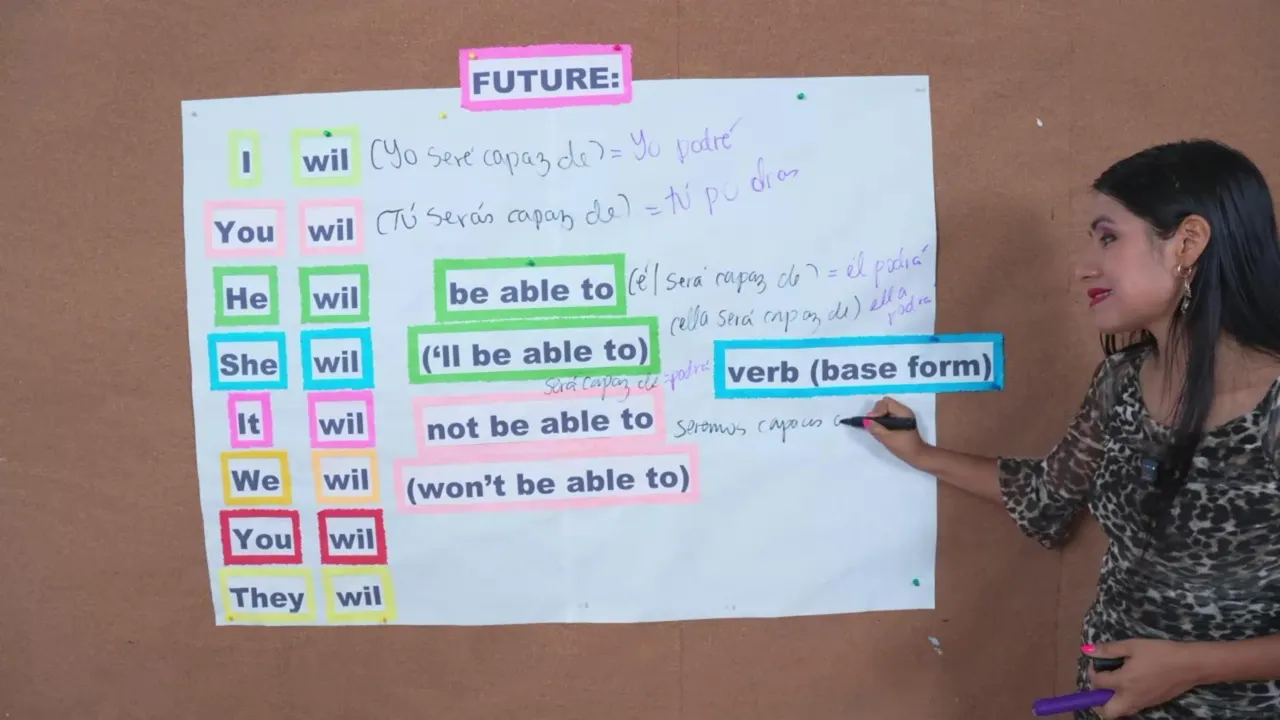 FUTURE:
I wil (Yo seré capaz de) = Yo podré
You wil (Tú serás capaz de) = tú podras
He wil be able to (él será capaz de) = él podrá
(ella será capaz de) ella podra
She wil ('ll be able to) verb (base form)
será capaz de = podrá
It wil not be able to seremos capaces
We wil (won't be able to)
You wil
They wil